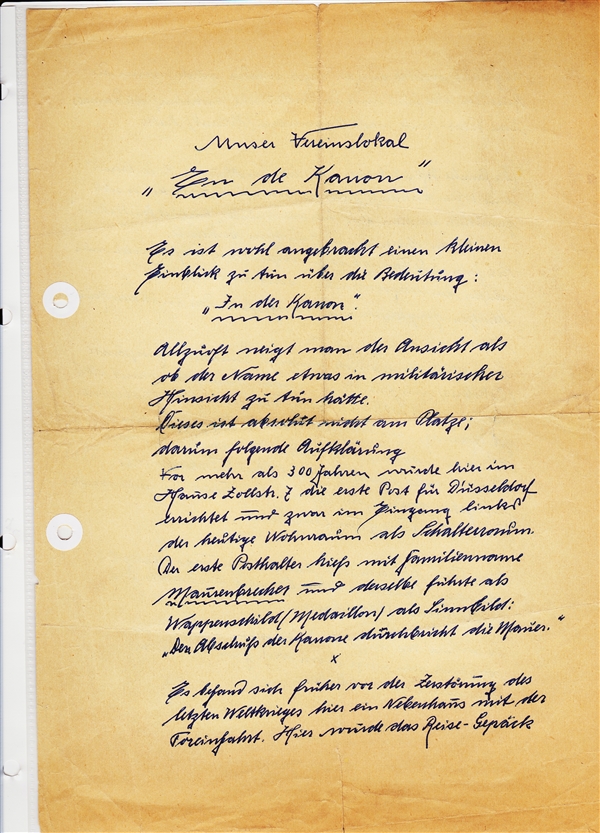 Unser Vereinslokal
„En de Kanon“
Es ist wohl angebracht einen kleinen
Einblick zu tun über die Bedeutung:
„In der Kanon“.
Allzuoft neigt man der Ansicht als
ob der Name etwas in militärischer
Hinsicht zu tun hätte.
Dieses ist absolut nicht am Platze;
darum folgende Aufklärung
Vor mehr als 300 Jahren wurde hier im
Hause Zollstr. 7 die erste Post für Düsseldorf
errichtet und zwar im Eingang links
der heutige Wohnraum als Schalterraum.
Der erste Posthalter hieß mit Familienname
Maurenbrecher und derselbe führte als
Wappenschild (Medaillon) als Sinnbild:
„Der Abschuß der Kanone durchbricht die Mauer.“
x
Es befand sich früher vor der Zerstörung des
letzten Weltkrieges hier ein Nebenhaus mit der
Toreinfahrt. Hier wurde das Reise-Gepäck